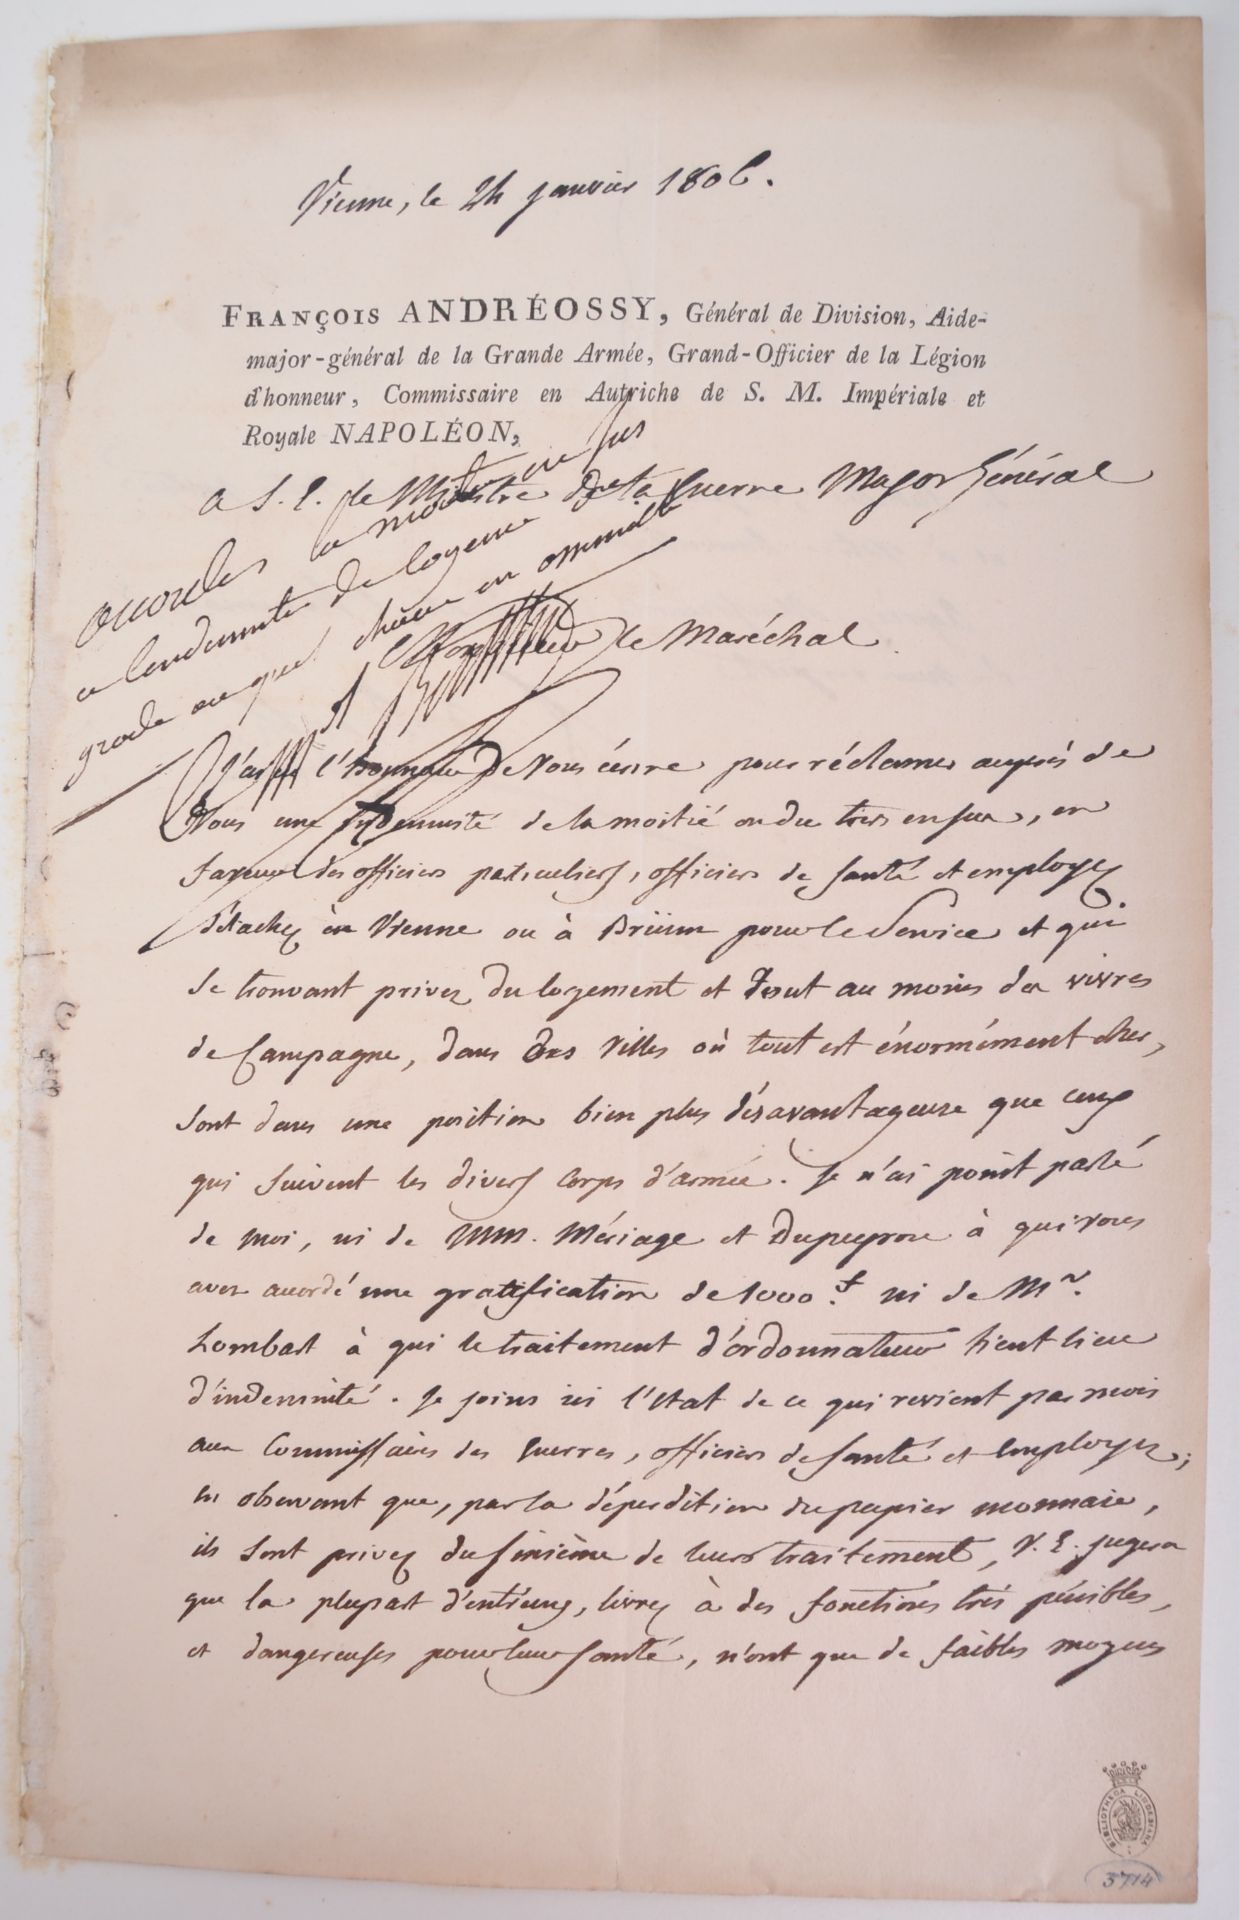 Vienne, le 24 janvier 1806.
FRANÇOIS ANDRÉOSSY, Général de Division, Aide-
major-général de la Grande Armée, Grand-Officier de la Légion
d'honneur, Commissaire en Autriche de S. M. Impériale et
Royale NAPOLÉON,
a S. E. le Ministre de la Guerre Major Général
accordez la moitié en sus
a lindemnite de logeme
grade au quel chacun en
Monsieur le Maréchal
J'ai eu l'honneur de Vous écrire pour réclamer auprès de
Vous une indemnité de la moitié ou du tiers en sus, en
faveur des officiers particuliers, officiers de santé et employez
détachez à Vienne ou à Brünn pour le Service et qui
se trouvant privez du logement et tout au moins des vivres
de Campagne, dans des villes où tout est énormément cher,
sont dans une position bien plus désavantageuse que ceux
qui suivent les divers corps d'armée. Je n'ai point parlé
de moi, ni de MM. Mériage et Dupeyron à qui vous
avez accordé une gratification de 1000 f. ni de Mr.
Lombart à qui le traitement d'ordonnateur tient lieu
d'indemnité. Je joins ici l'état de ce qui revient par mois
aux Commissaires des Guerres, officiers de santé et Employez;
en observant que, par la déperdition du papier monnaie,
ils sont privez du sixième de leurs traitement, V. E. jugera
que la plupart d'entr'eux, livrez à des fonctions très pénibles,
et dangereuses pour leur santé, n'ont que de faibles moyens
BIBLIOTHECA LINDESIANA
3714